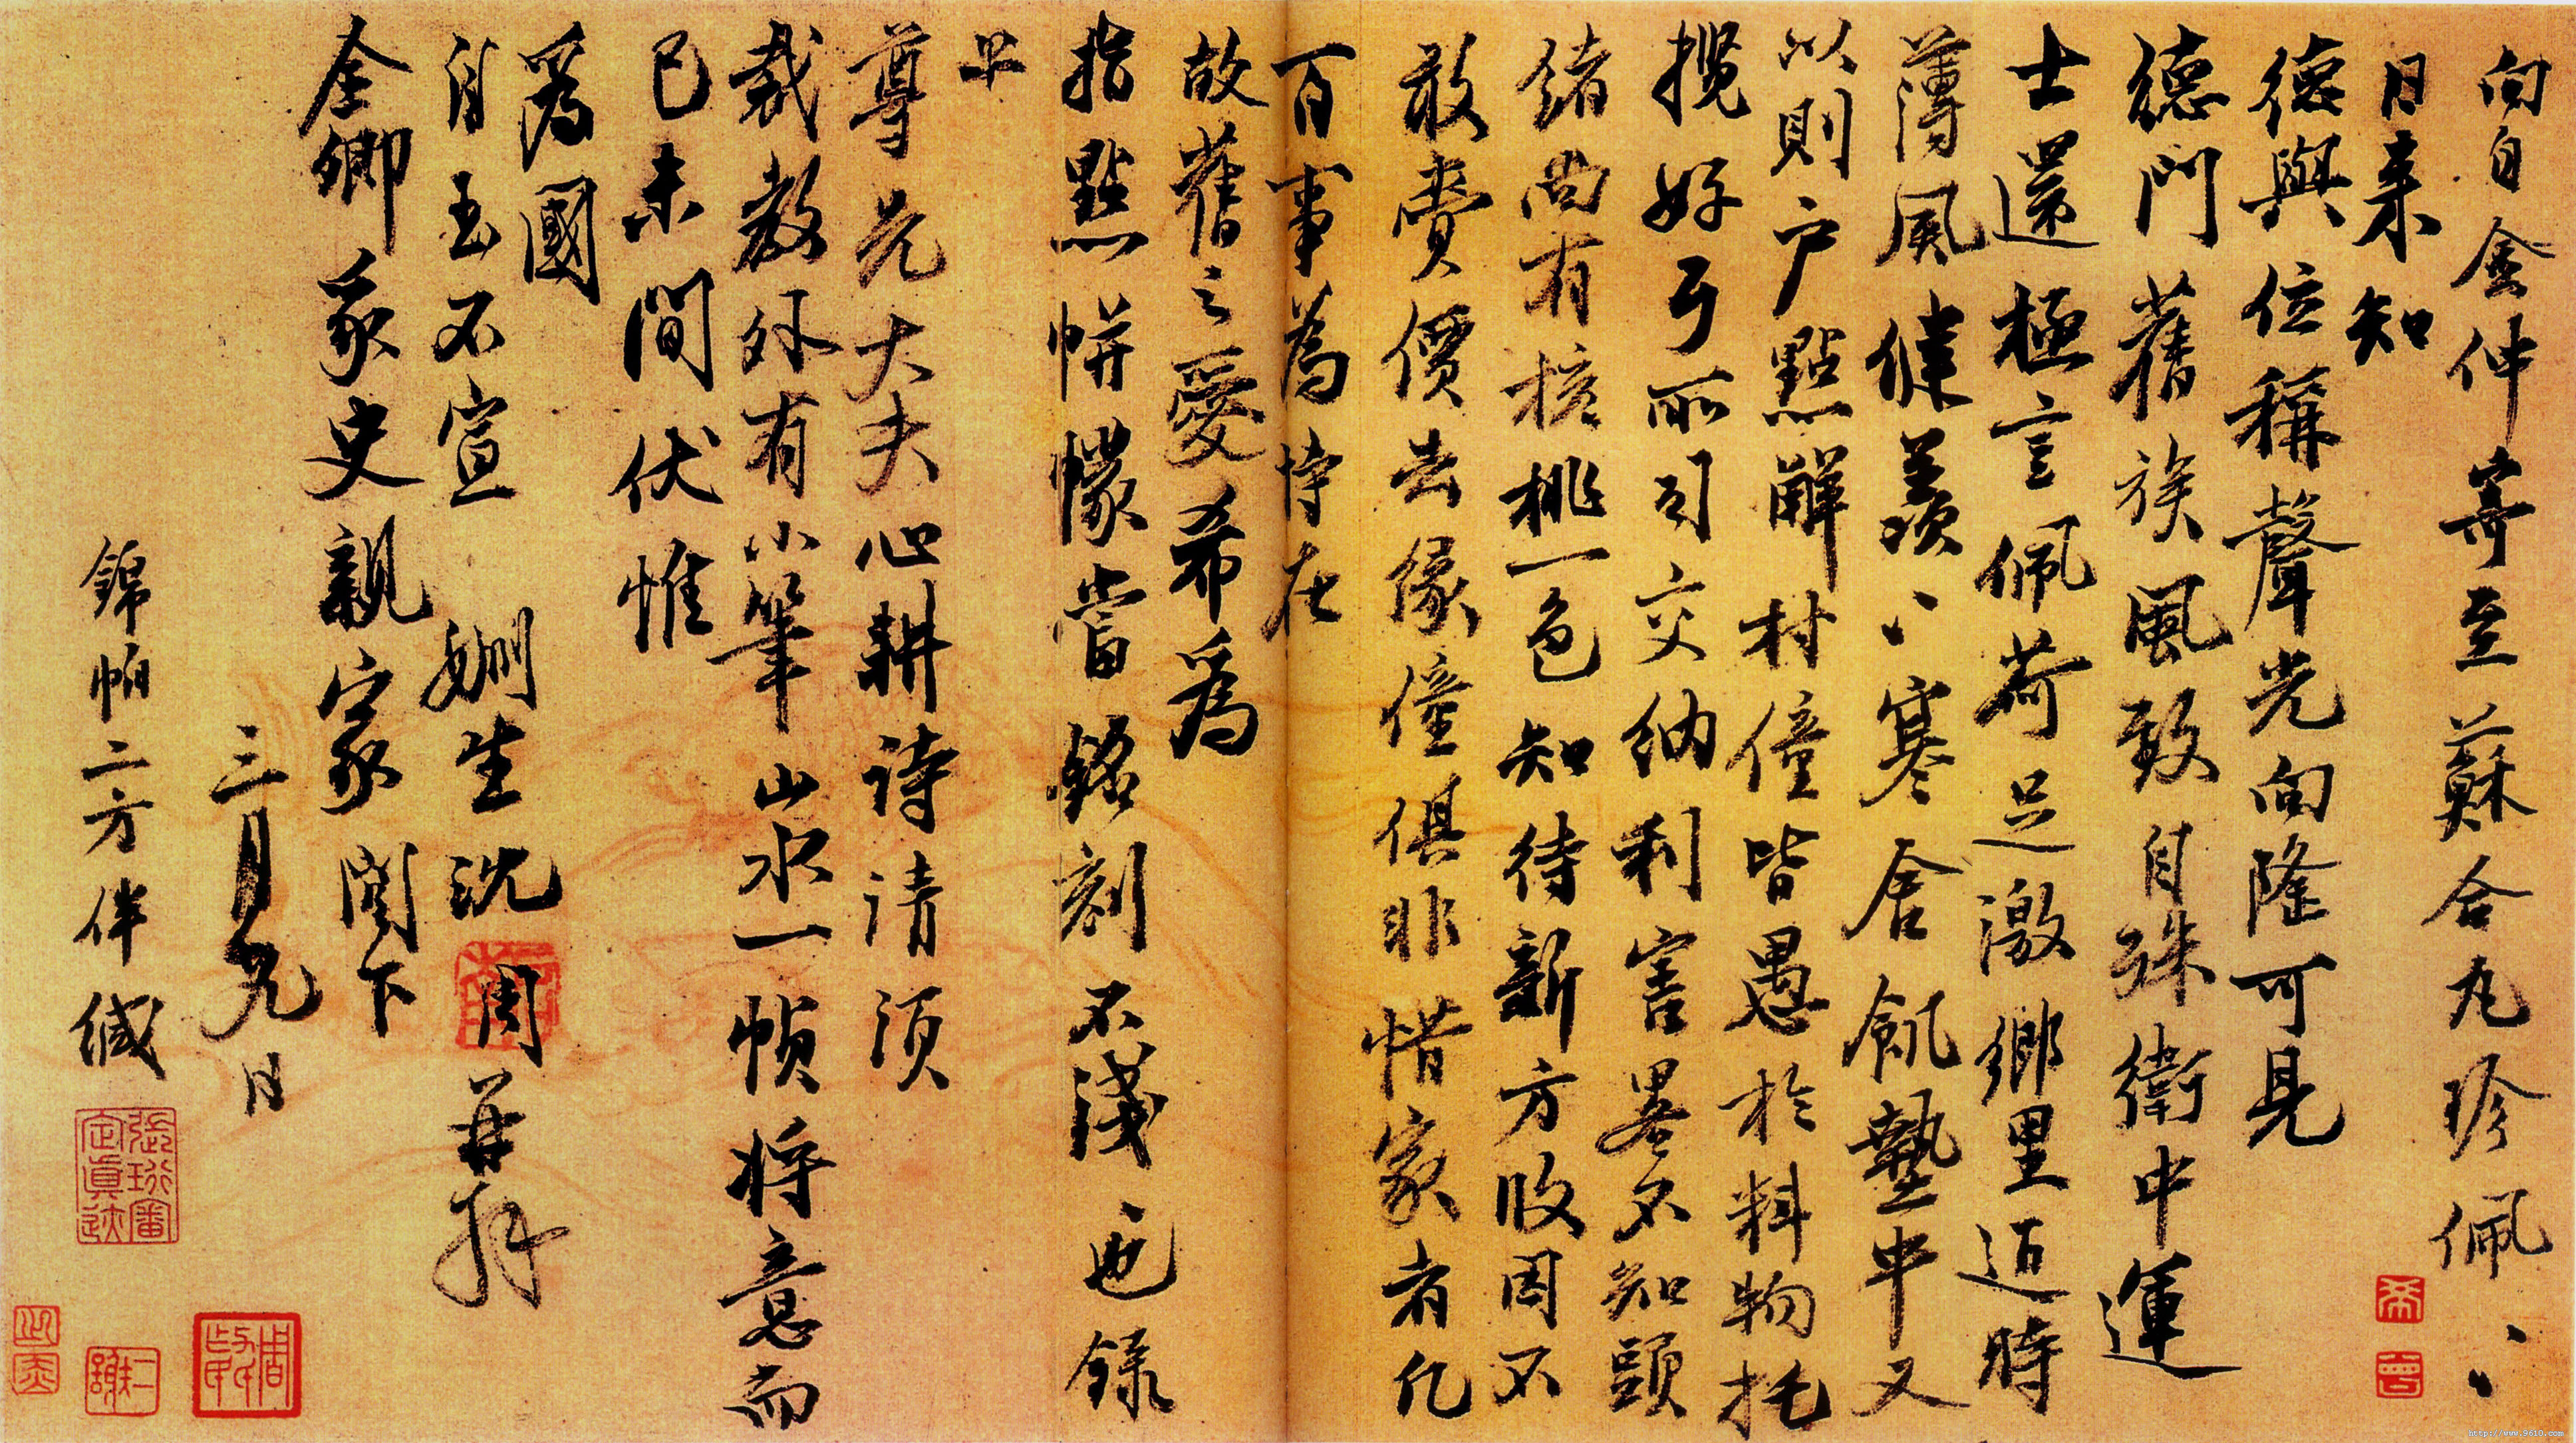 向自金仲寄至蘇合丸珍佩、、
日来知
德與位稱聲光向隆可見
德門舊族風致自殊衛中運
士還極言佩荷足激鄉里迺時
薄風健羨、、寒舍飢蓺中又
以則户點解村僮皆愚於料物托
攬好了所司交納利害畧不知頭
緒尚有一色知待新方收因不
敢賣價去緣僮俱非惜家者凡
百事為恃在
故舊之愛希為
指點帡幪當銘刻不淺也錄
上
尊先大夫心耕詩請須
裁教外有小筆山水一幀将意而
已未間伏惟
為國
自玉不宣 姻生沈周再拜
奎卿象史親家閣下
三月九日
錦帕二方伴緘
張珩審定真迹
http://www.9610.com